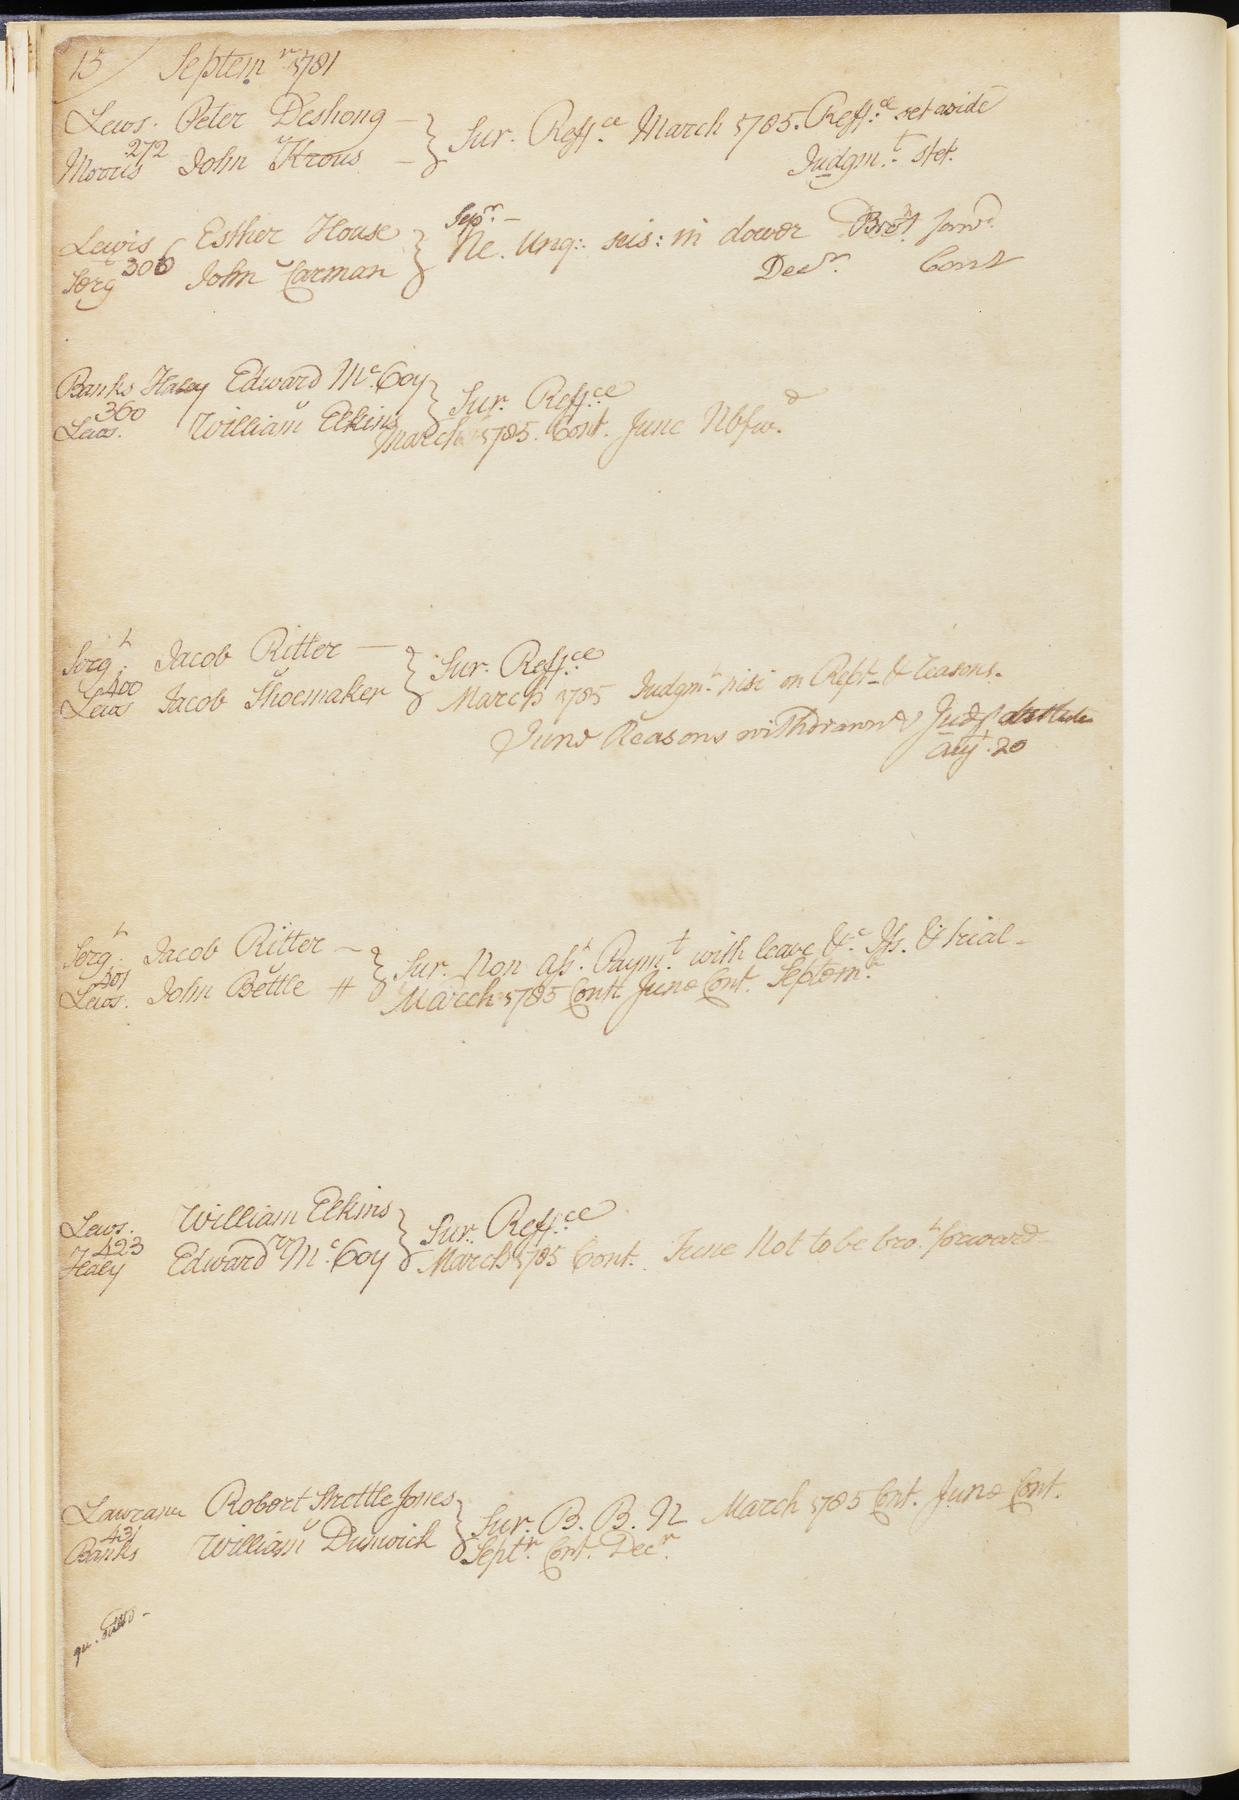 13 Septemr. 1781
Lews. Peter Deshong
272
Sur. Reffce March 1785. Reffce set aside
Morris John Krous
Judgmt. stet.
Sepr. —
Lewis Esther House
Ne. Unq: seis: in dower Brot forwd.
Serg 306 John Carman
Decr. Cont
Banks Haley Edward Mc.Coy
Sur. Reffce
360
Lews. William Elkins
March 1785. Cont. June NBfwd.
Sergt. Jacob Ritter —
Sur. Reffce
400
Lews Jacob Shoemaker
March 1785 Judgmt. nisi on Rept & reasons.
June Reasons withdrawn & Judgt
Aug. 20
Sergt. Jacob Ritter —
Sur. Non ass. Paymt. with leave &c. Iss. & trial —
401
Lews. John Bettle #
March 1785 Cont. June Cont. Septemr.
Lews. William Elkins
Sur. Reffce
423
Haley Edward Mc.Coy
March 1785 Cont. June Not to be brot. forward
Lawrance Robert Strettle Jones
Sur. B. B. N March 1785 Cont. June Cont.
431
Banks William Dunwick
Septr. Cont. Decr.
qu.